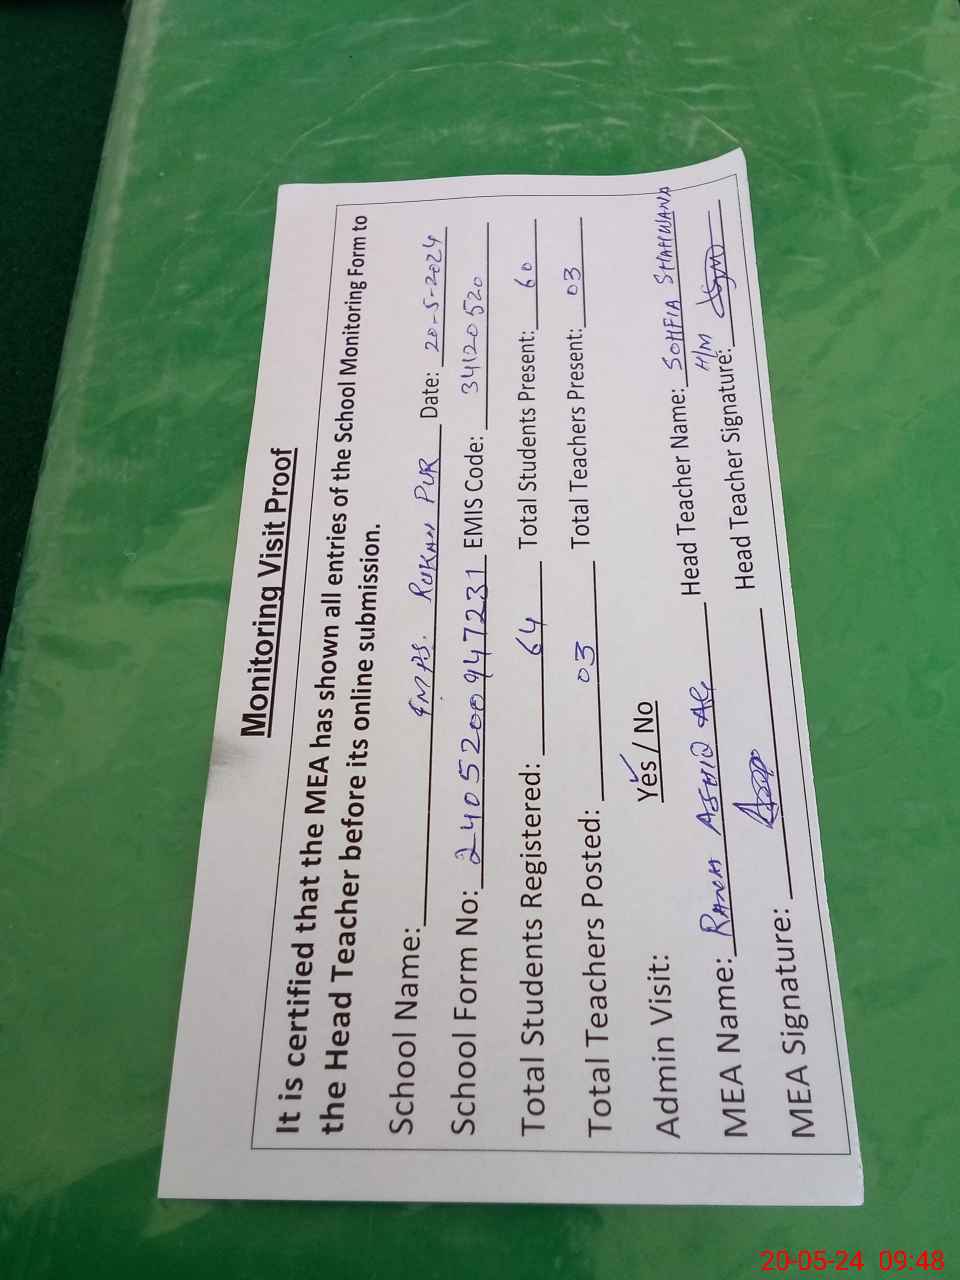 Monitoring Visit Proof
It is certified that the MEA has shown all entries of the School Monitoring Form to
the Head Teacher before its online submission.
School Name: GMPS. RUKAN PUR Date: 20-5-2024
School Form No: 2405200947231 EMIS Code: 34120520
Total Students Registered: 64 Total Students Present: 60
Total Teachers Posted: 03 Total Teachers Present: 03
Admin Visit: Yes / No
MEA Name: ASHIQ Head Teacher Name: SOHFIA SHAHWANA
H/M
MEA Signature: Head Teacher Signature:
20-05-24 09:48